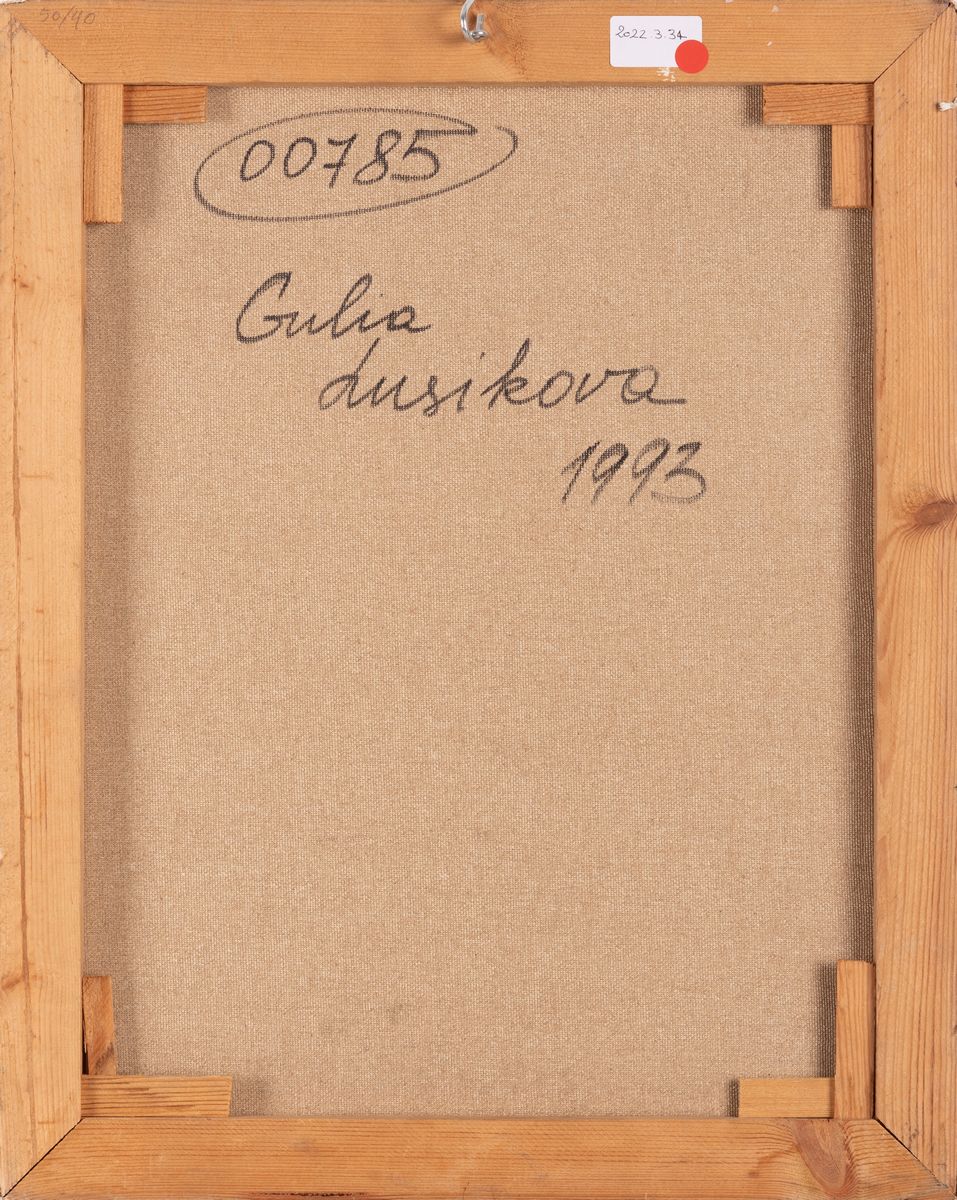 50/40
2022.3.34
00785
Gulia
Lusikova
1993